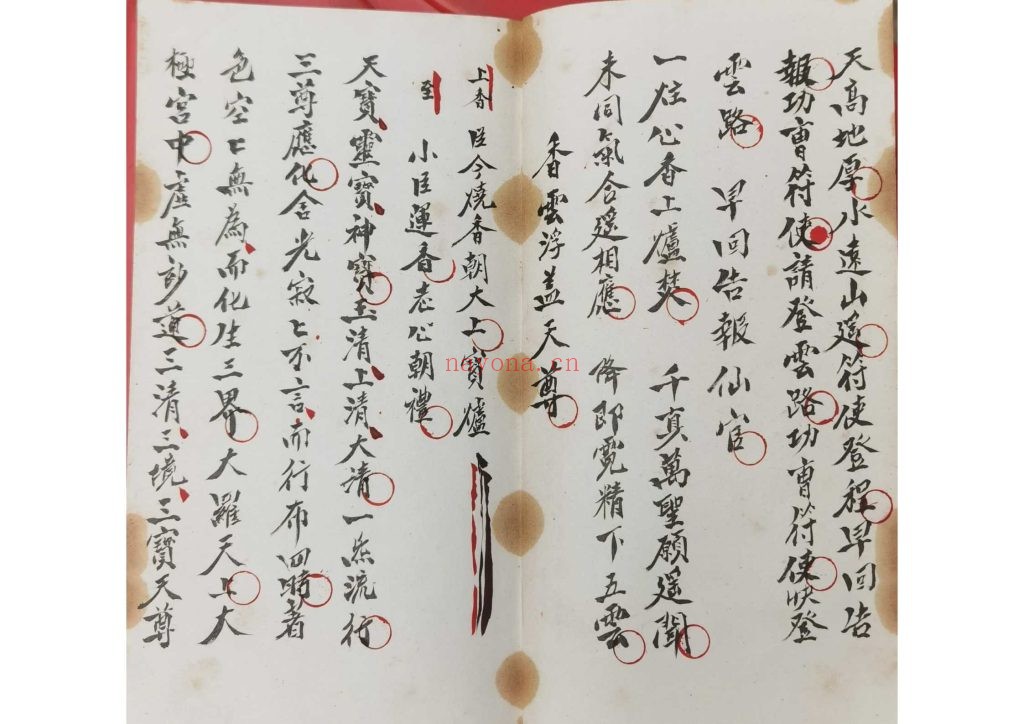 天高地厚水遠山遙符使登程早回告
報功曹符使請登雲路功曹符使快登
雲路 早回告報仙官
一炷心香上爐焚 千真萬聖願遥聞
未同氣合遥相應 降郎霓精下五雲
香雲浮盖天尊
上香 臣今燒香朝大上寶爐
至 小臣運香志心朝禮
天寶靈寶神寶玉清上清大清一炁流行
三尊應化含光寂〻不言而行布四時者
色空〻無為而化生三界大羅天上大
極宮中虛無妙道三清三境三寶天尊
nayona.cn